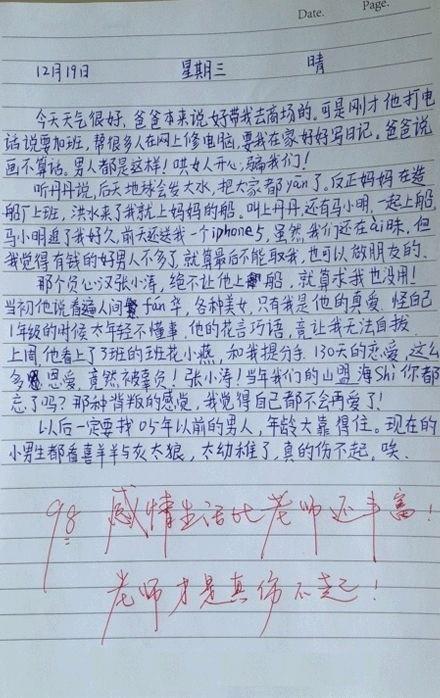 Date.
Page.
12月19日 星期三 晴
今天天气很好，爸爸本来说好带我去商场的。可是刚才他打电
话说要加班，帮很多人在网上修电脑，要我在家好好写日记。爸爸说
画不算话。男人都是这样！哄女人开心，骗我们！
听丹丹说，后天地球会发大水，把大家都yān了。反正妈妈在造
船厂上班，洪水来了我就上妈妈的船。叫上丹丹，还有马小明，一起上船，
马小明追了我好久，前天还送我一个iphone5，虽然我们还在ai昧，但
我觉得有钱的好男人不多了，就算最后不能取我，也可以做朋友的。
那个负心汉张小涛，绝不让他上船，就算求我也没用！
当初他说看遍人间fán华，各种美女，只有我是他的真爱，怪自己
1年级的时候太年轻不懂事，他的花言巧语，竟让我无法自拔
上周他看上了3班的班花小燕，和我提分手，130天的恋爱，这么
多恩爱，竟然被辜负！张小涛！当年我们的山盟海Shì你都
忘了吗？那种背叛的感觉，我觉得自己都不会再爱了！
以后一定要找05年以前的男人，年龄大靠得住。现在的
小男生都看喜羊羊与灰太狼，太幼稚了，真的伤不起，唉．
98 感情生活比老师还丰富！
老师才是真伤不起！